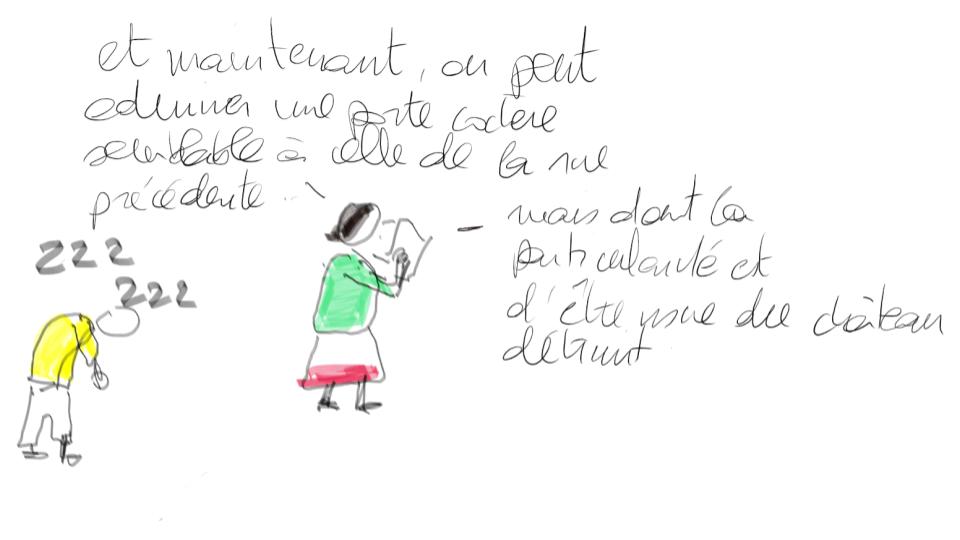 et maintenant, on peut
admirer une porte cochère
semblable à celle de la rue
précédente ...
- mais dont la
particularité et
d'être issue du château
détruit
ZZZ
ZZZ